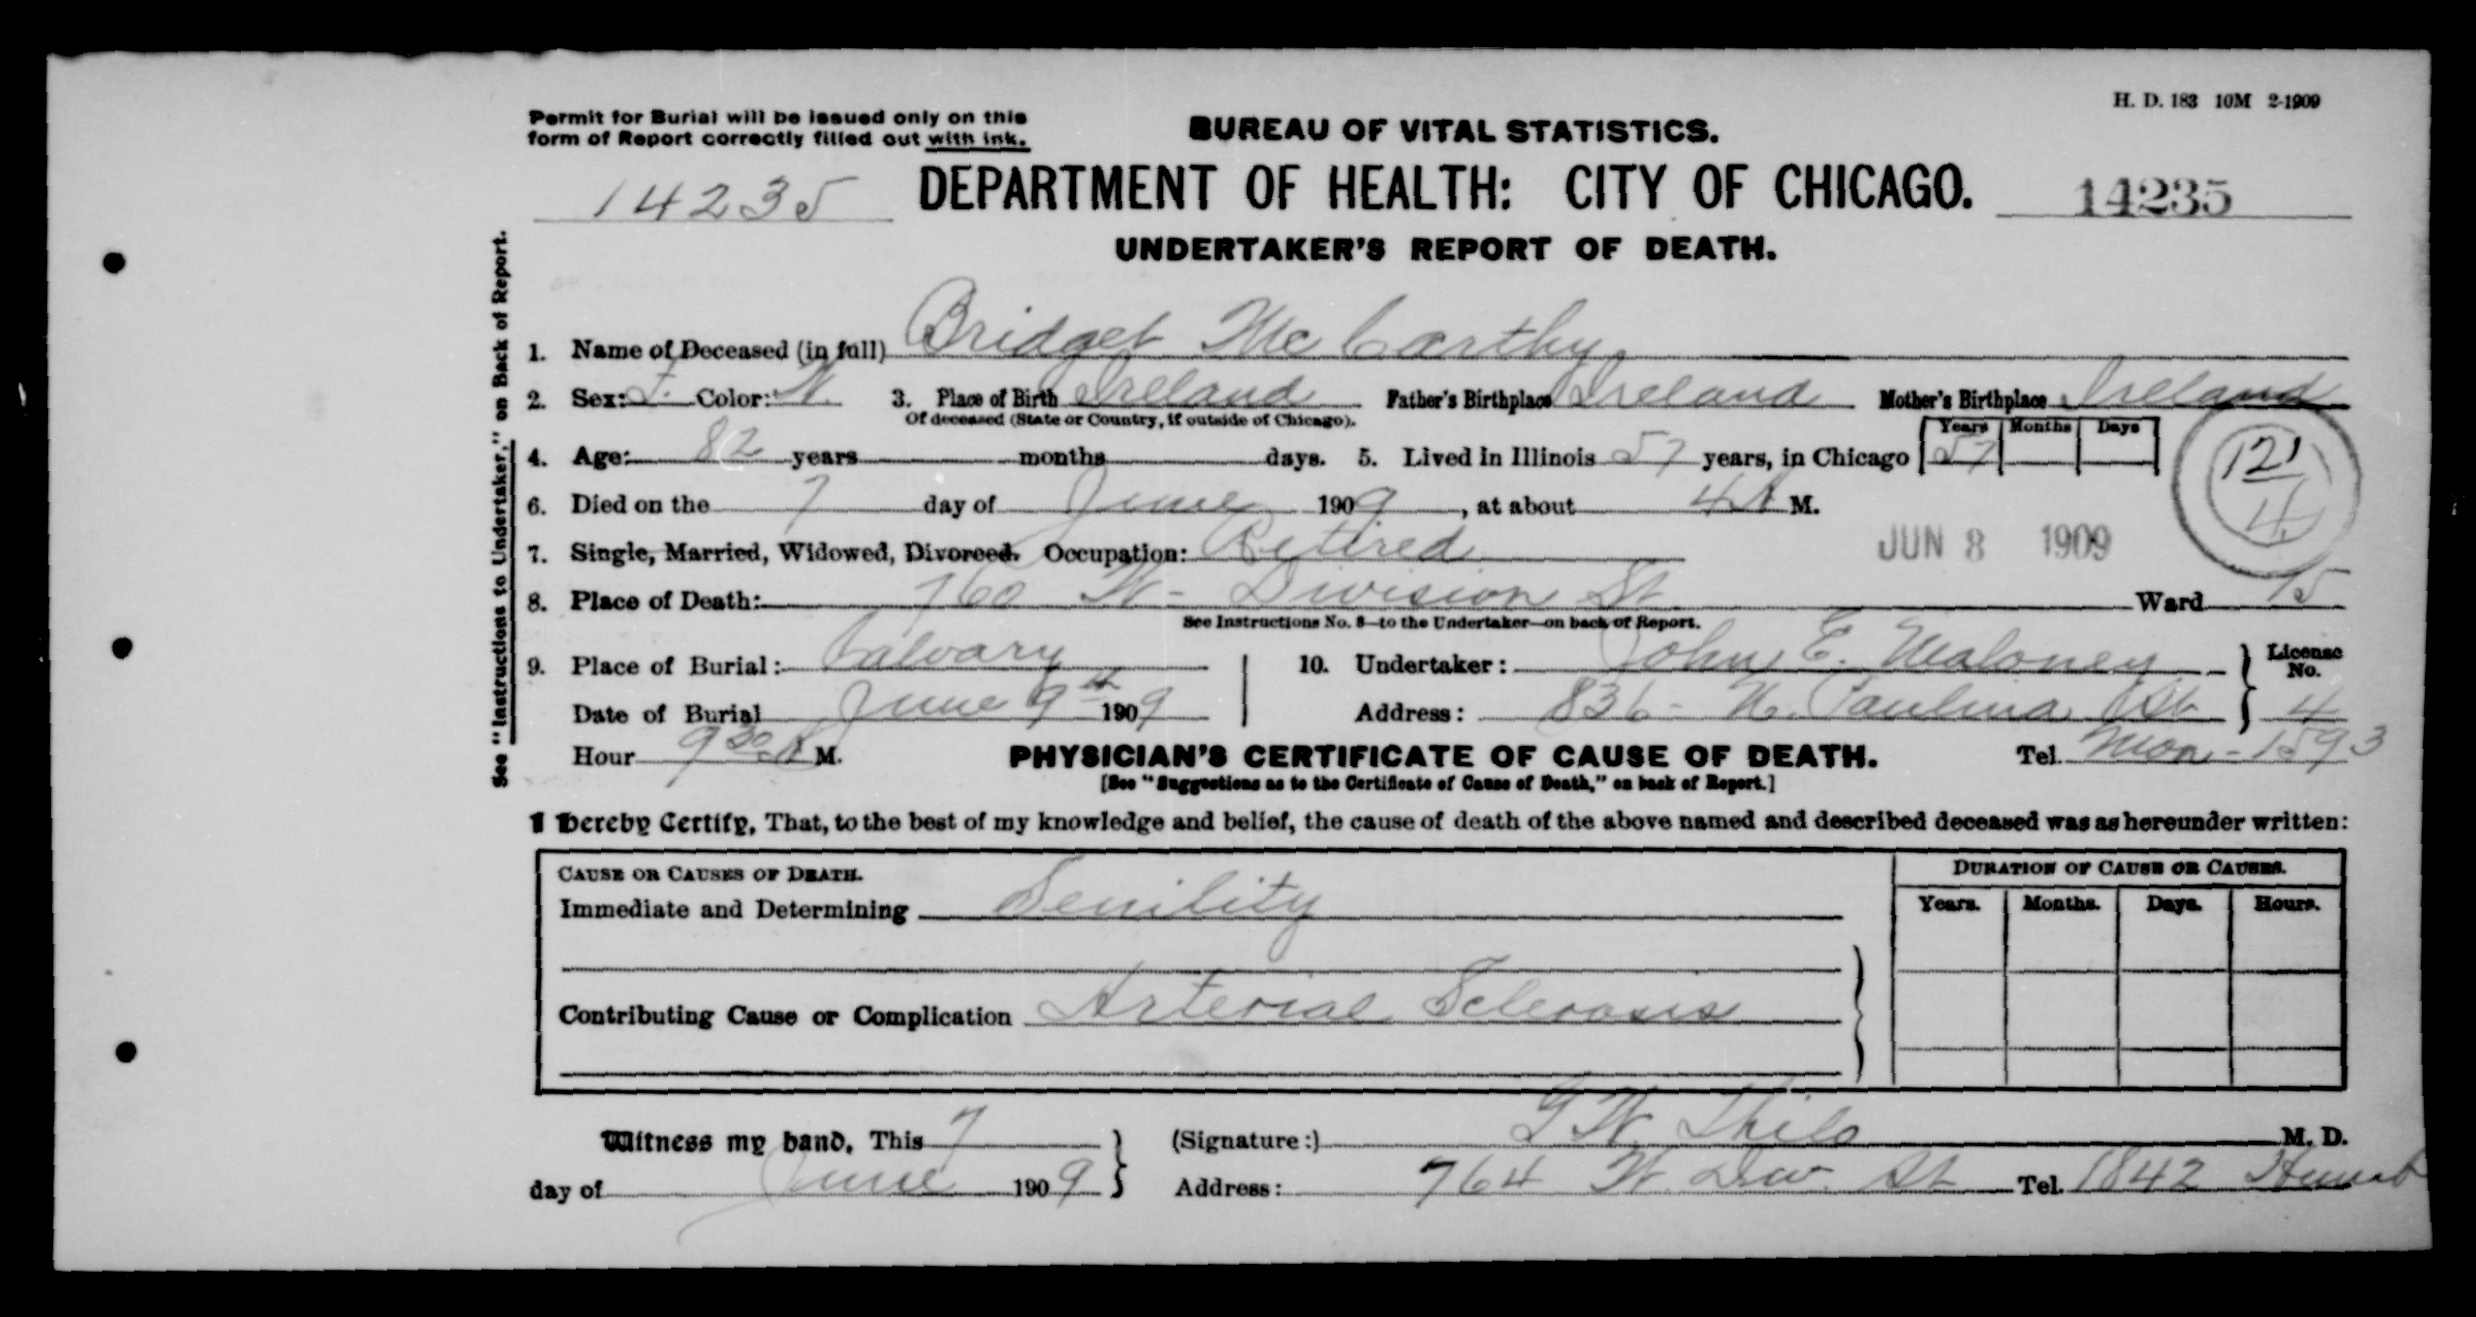 H. D. 183 10M 2-1909
Permit for Burial will be issued only on this
form of Report correctly filled out with ink.
BUREAU OF VITAL STATISTICS.
14235 DEPARTMENT OF HEALTH: CITY OF CHICAGO. 14235
UNDERTAKER'S REPORT OF DEATH.
See "Instructions to Undertaker," on Back of Report.
1. Name of Deceased (in full) Bridget McCarthy
2. Sex: F. Color: W. 3. Place of Birth Ireland Father's Birthplace Ireland Mother's Birthplace Ireland
Of deceased (State or Country, if outside of Chicago).
Years Months Days
4. Age: 82 years months days. 5. Lived in Illinois 57 years, in Chicago 57
121
4
6. Died on the 7 day of June 1909, at about 4 A M.
7. Single, Married, Widowed, Divorced. Occupation: Retired
JUN 8 1909
8. Place of Death: 760 W. Division St Ward 15
See Instructions No. 8—to the Undertaker—on back of Report.
9. Place of Burial: Calvary 10. Undertaker: John E. Maloney License No.
Date of Burial June 9th 1909 Address: 836 N. Paulina St 4
Hour 9 30 A M. PHYSICIAN'S CERTIFICATE OF CAUSE OF DEATH. Tel. Mon-1593
[See "Suggestions as to the Certificate of Cause of Death," on back of Report.]
I hereby Certify, That, to the best of my knowledge and belief, the cause of death of the above named and described deceased was as hereunder written:
CAUSE OR CAUSES OF DEATH. DURATION OF CAUSE OR CAUSES.
Immediate and Determining Senility Years. Months. Days. Hours.
Contributing Cause or Complication Arterial Sclerosis
Witness my hand, This 7 (Signature:) G W. Thilo M. D.
day of June 1909 Address: 764 W. Div. St Tel. 1842